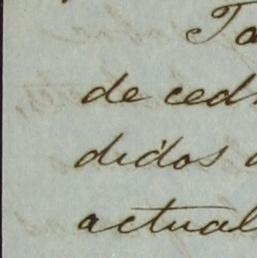 Ta
de ced
didos a
actual